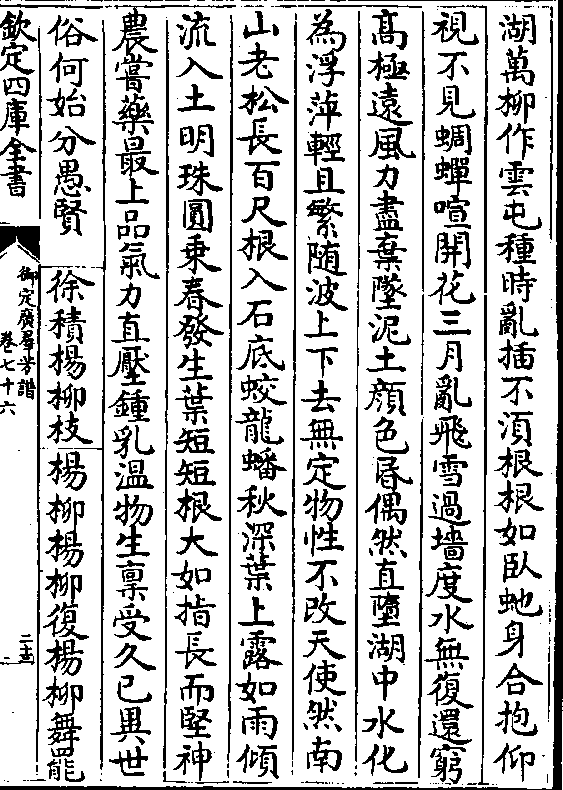 湖萬柳作雲屯種時亂插不湏根根如臥虵身合抱仰
視不見蜩蟬喧開花三月亂飛雪過墻度水無復還窮
髙極逺風力盡棄墜泥土顔色昬偶然直墮湖中水化
為浮萍輕且繁随波上下去無定物性不改天使然南
山老松長百尺根入石底蛟龍蟠秋深葉上露如雨傾
流入土明珠圓乗春發生葉短短根大如指長而堅神
農嘗藥最上品氣力直壓鍾乳温物生禀受久已異世
俗何始分愚賢　徐積楊柳枝　楊柳楊柳復楊柳舞罷
欽定四庫全書
御定廣羣芳譜
卷七十六